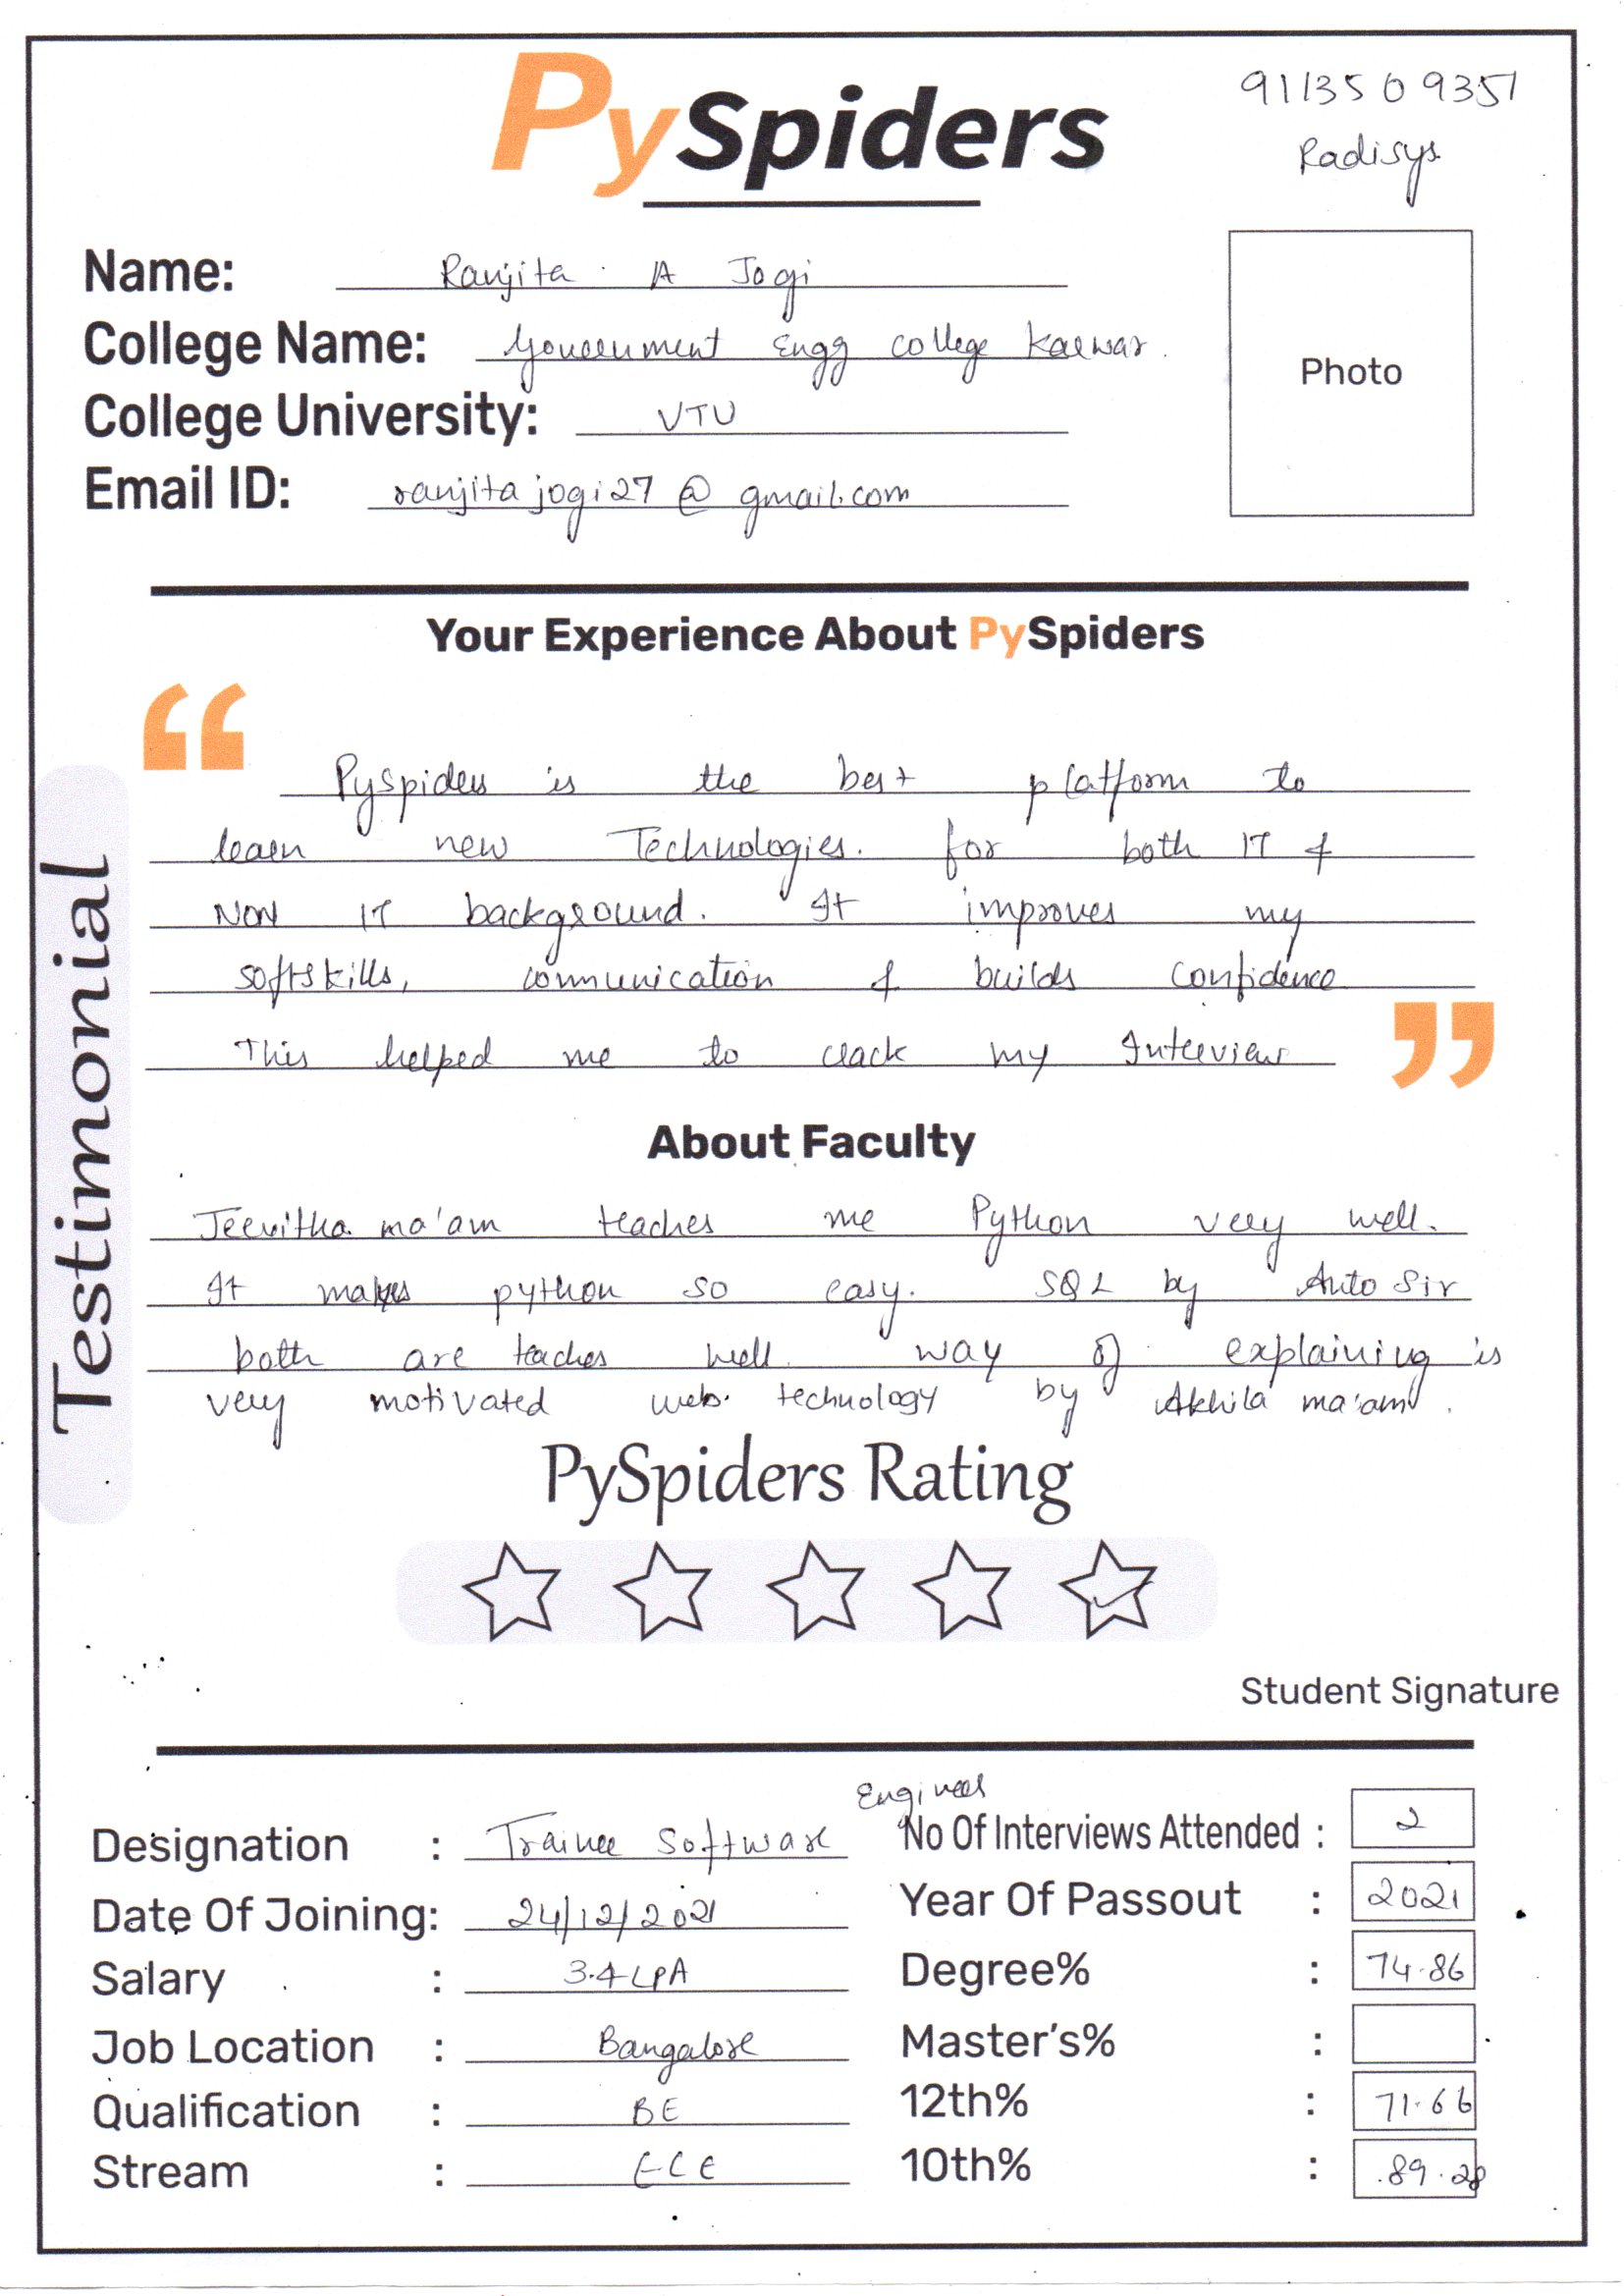 PySpiders
9113509357
Radisys
Name: Ranjita A Jogi
College Name: Government Engg college Karwar.
Photo
College University: VTU
Email ID: ranjitajogi27@gmail.com
Your Experience About PySpiders
“
Pyspiders is the best platform to
learn new Technologies. for both IT &
NON IT background. It improves my
softskills, communication & builds confidence
This helped me to crack my Interview
”
Testimonial
About Faculty
Jeevitha ma'am teaches me Python very well.
It makes python so easy. SQL by Auto Sir
both are teaches well way of explaining is
very motivated web. technology by Akhila ma'am.
PySpiders Rating
Student Signature
Designation : Trainee Software Engineer
No Of Interviews Attended : 2
Date Of Joining: 24/12/2021
Year Of Passout : 2021
Salary : 3.4 LPA
Degree% : 74.86
Job Location : Bangalore
Master's% :
Qualification : BE
12th% : 71.66
Stream : ECE
10th% : 89.28